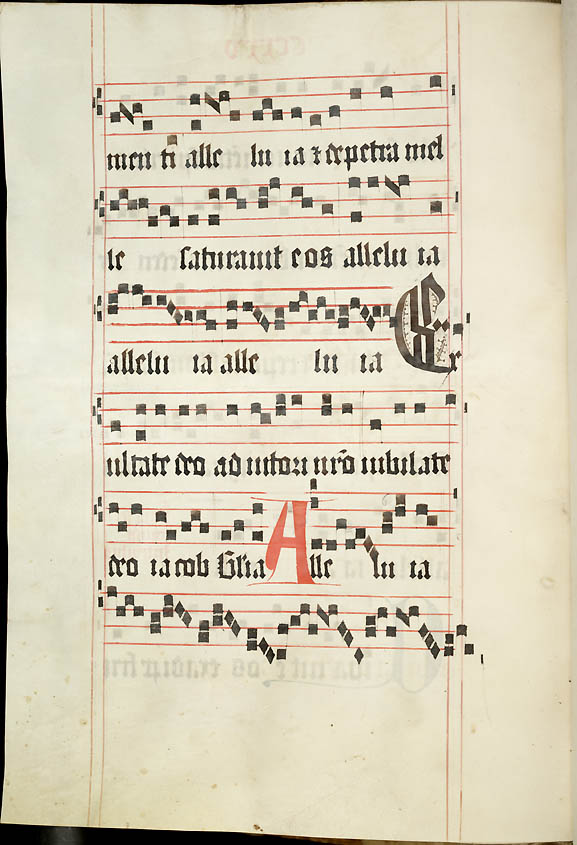 men ti alle lu ia ⁊ de petra mel
le saturauit eos allelu ia
allelu ia alle lu ia Ex
ultate deo adiutori nr̄o iubilate
deo iacob Gl̄ia Alle lu ia